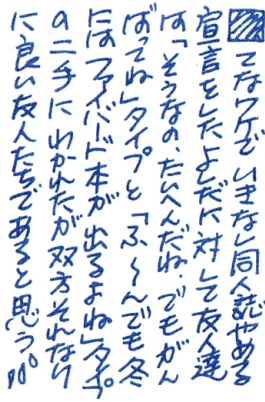 てなワケでいきなし同人誌やめる
宣言をしたよしだに対して友人達
は「そうなの、たいへんだね。でもがん
ばってね」タイプと「ふ〜んでも冬
にはファイバード本が出るよね」タイプ
の二手にわかれたが双方それなり
に良い友人たちであると思う。